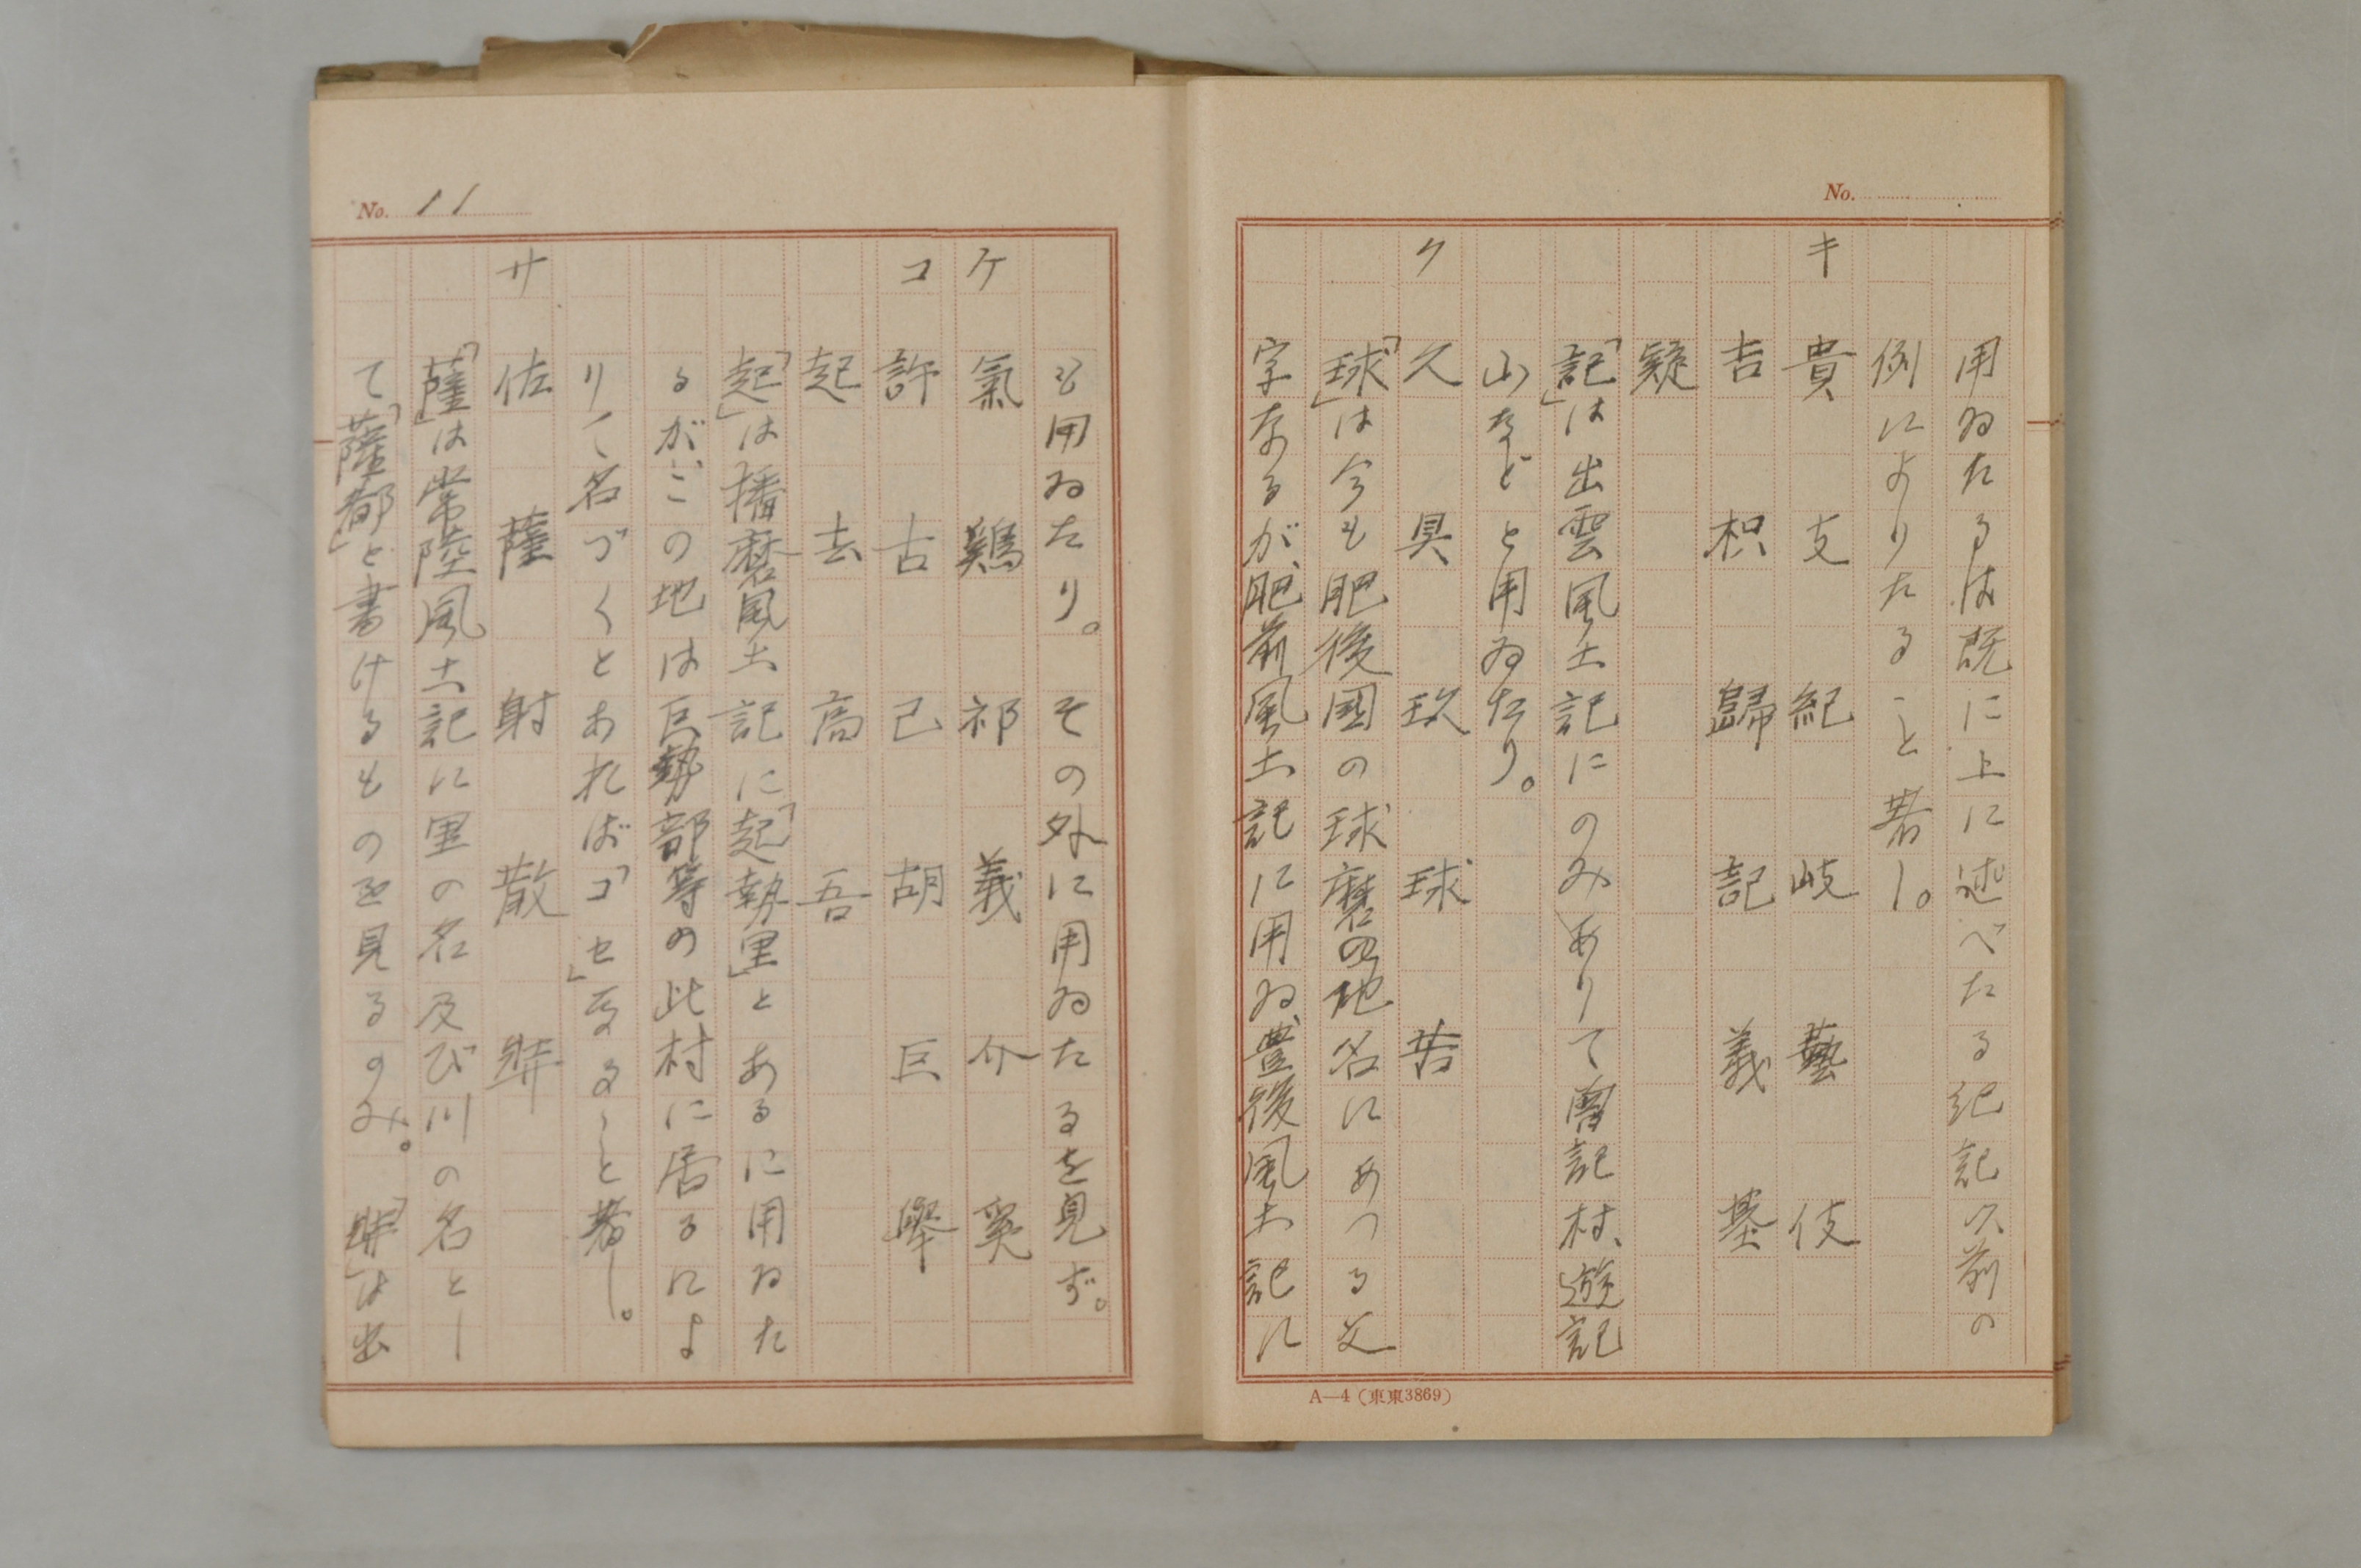 No.
用ゐたるは既に上に述べたる紀記以前の
例によりたること著し。
キ 貴 支 紀 岐 藝 伎
吉 枳 歸 記 義 基
疑
「記」は出雲風土記にのみありて 記村、遊記
山などと用ゐたり。
ク 久 具 玖 球 苦
「球」は今も肥後國の球磨の地名にあつる文
字なるが、肥前風土記に用ゐ、豊後風土記に
A—4(東東3869)
No. 11
も用ゐたり。その外に用ゐたるを見ず。
ケ 氣 鷄 祁 義 介 奚
コ 許 古 己 胡 巨 擧
起 去 高 吾
「起」は播磨風土記に「起勢里」とあるに用ゐた
るが、この地は巨勢部等の此村に居るによ
りて名づくとあれば「コセ」なること著し。
サ 佐 薩 射 散
「薩」は常陸風土記に里の名及び川の名とし
て「薩都」と書けるものを見るのみ。 は出